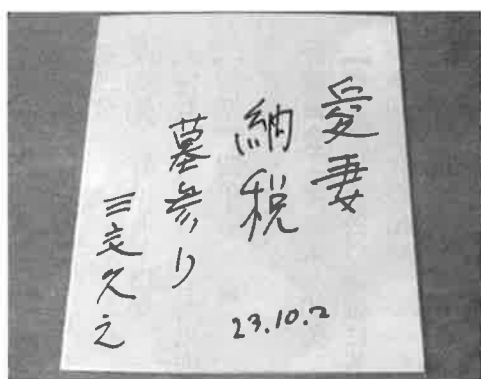 愛妻
納税
墓参り
三宅久之
23.10.2